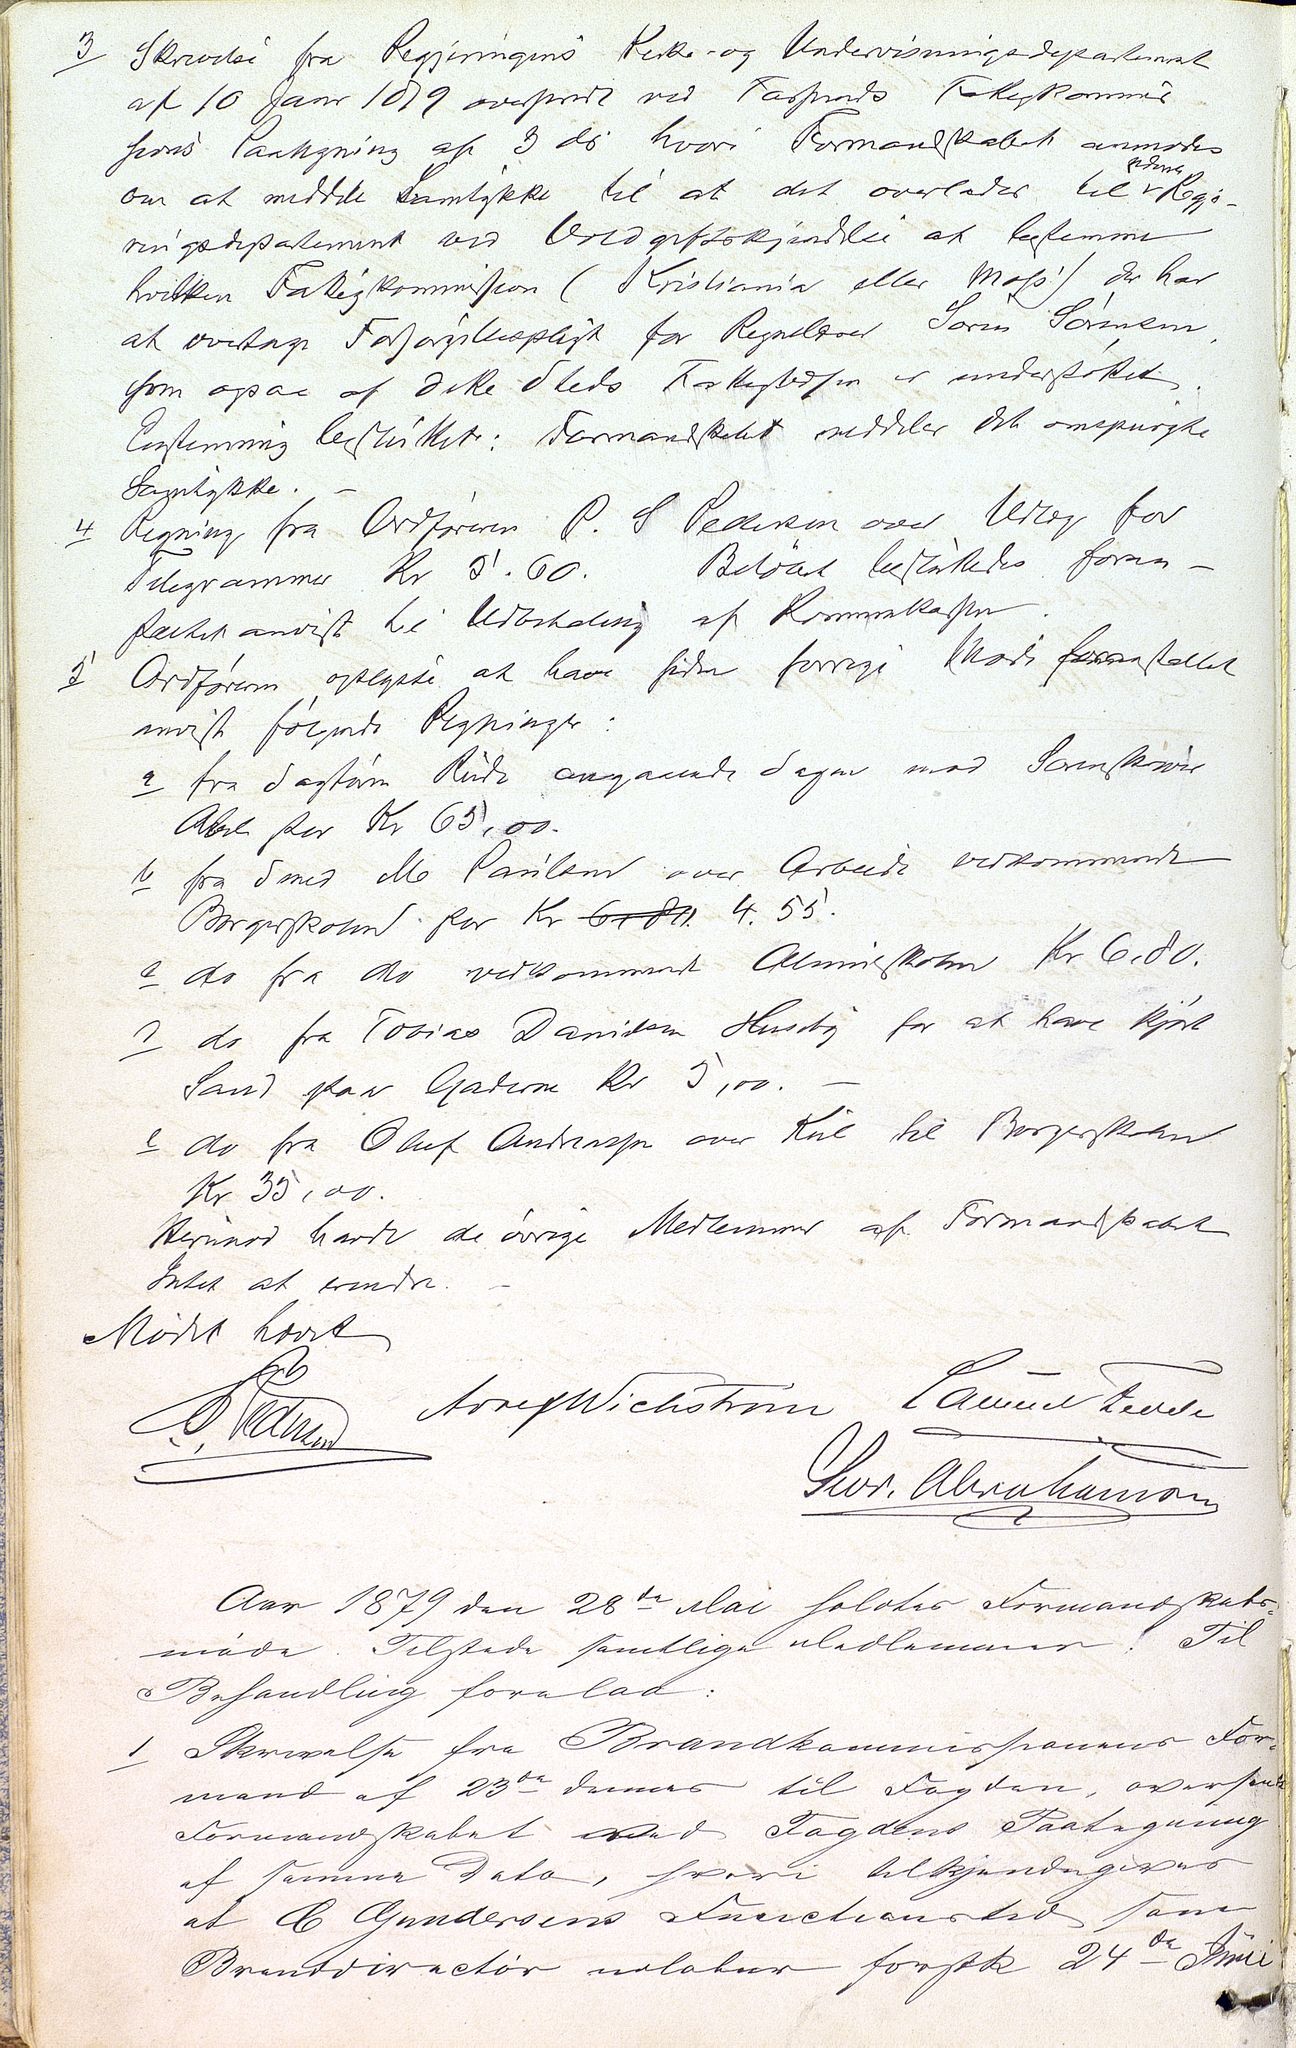 3 Skrivelse fra Regjeringens Kirke- og Undervisningsdepartement
af 10 Janr 1879 oversendt ved Farsunds Fattigkommis
sions Paategning af 3 ds hvori Formandskabet anmodes
om at meddele Samtykke til at det overlades til Regje-
ringsdepartement ved Voldgiftskjendelse at bestemme
hvilken Fattigkommission (Kristiania eller Moss) der har
at overtage Forsørgelsespligt for Søren Sørensen,
som ogsaa af dette Steds Fattigvæsen er understøttet.
Enstemmig besluttet: Formandskabet meddeler det omspurgte
Samtykke. –
4 Regning fra Ordføreren P. S Pedersen over Udlæg for
Telegrammer Kr 5.60. Beløbet besluttedes foran-
staltet anvist til Udbetaling af Kommunekassen.
5 Ordføreren oplyste at have siden forrige Møde foranstaltet
anvist følgende Regninger:
a fra Sagfører angaaende Sagen mod Sorenskriver
Abel stor Kr 65,00.
b fra Smed M Paulsen over Arbeide vedkommende
Borgerskolen stor Kr 6,80. 4.55.
c do fra do vedkommende Almueskolen Kr 6,80.
d do fra Tobias Danielsen Huseby for at have kjørt
Sand paa Gaderne Kr 5,00. –
e do fra Oluf Andreassen over Kul til Borgerskolen
Kr 35,00.
Herimod havde de øvrige Medlemmer af Formandskabet
Intet at erindre. –
Mødet hævet
P. S. Pedersen Wichstrøm
Abrahamson
Aar 1879 den 28de Mai holdtes Formandskabs-
møde. Tilstede samtlige Medlemmer. Til
Behandling forelaa:
1 Skrivelse fra Brandkommissionens For-
mand af 23de dennes til Fogden, oversendt
Formandskabet med Fogdens Paategning
af samme Dato, hvori tilkjendegives
at C Gundersens Functionstid som
Branddirectør udløber førstk 24de Juni